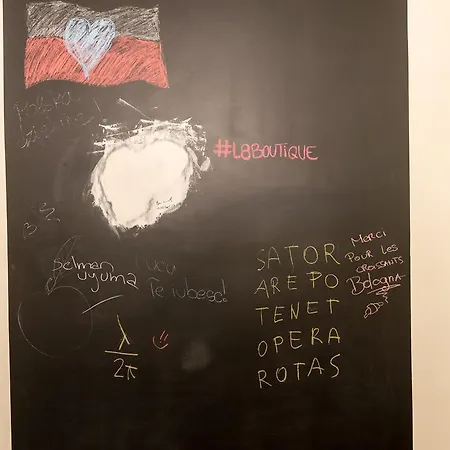 #L8BOUTIQUE
selman
uyuma
Te iubesc!
SATOR
AREPO
TENET
OPERA
ROTAS
MERCI
POUR LES
CROISSANTS
Bologna
λ
2π